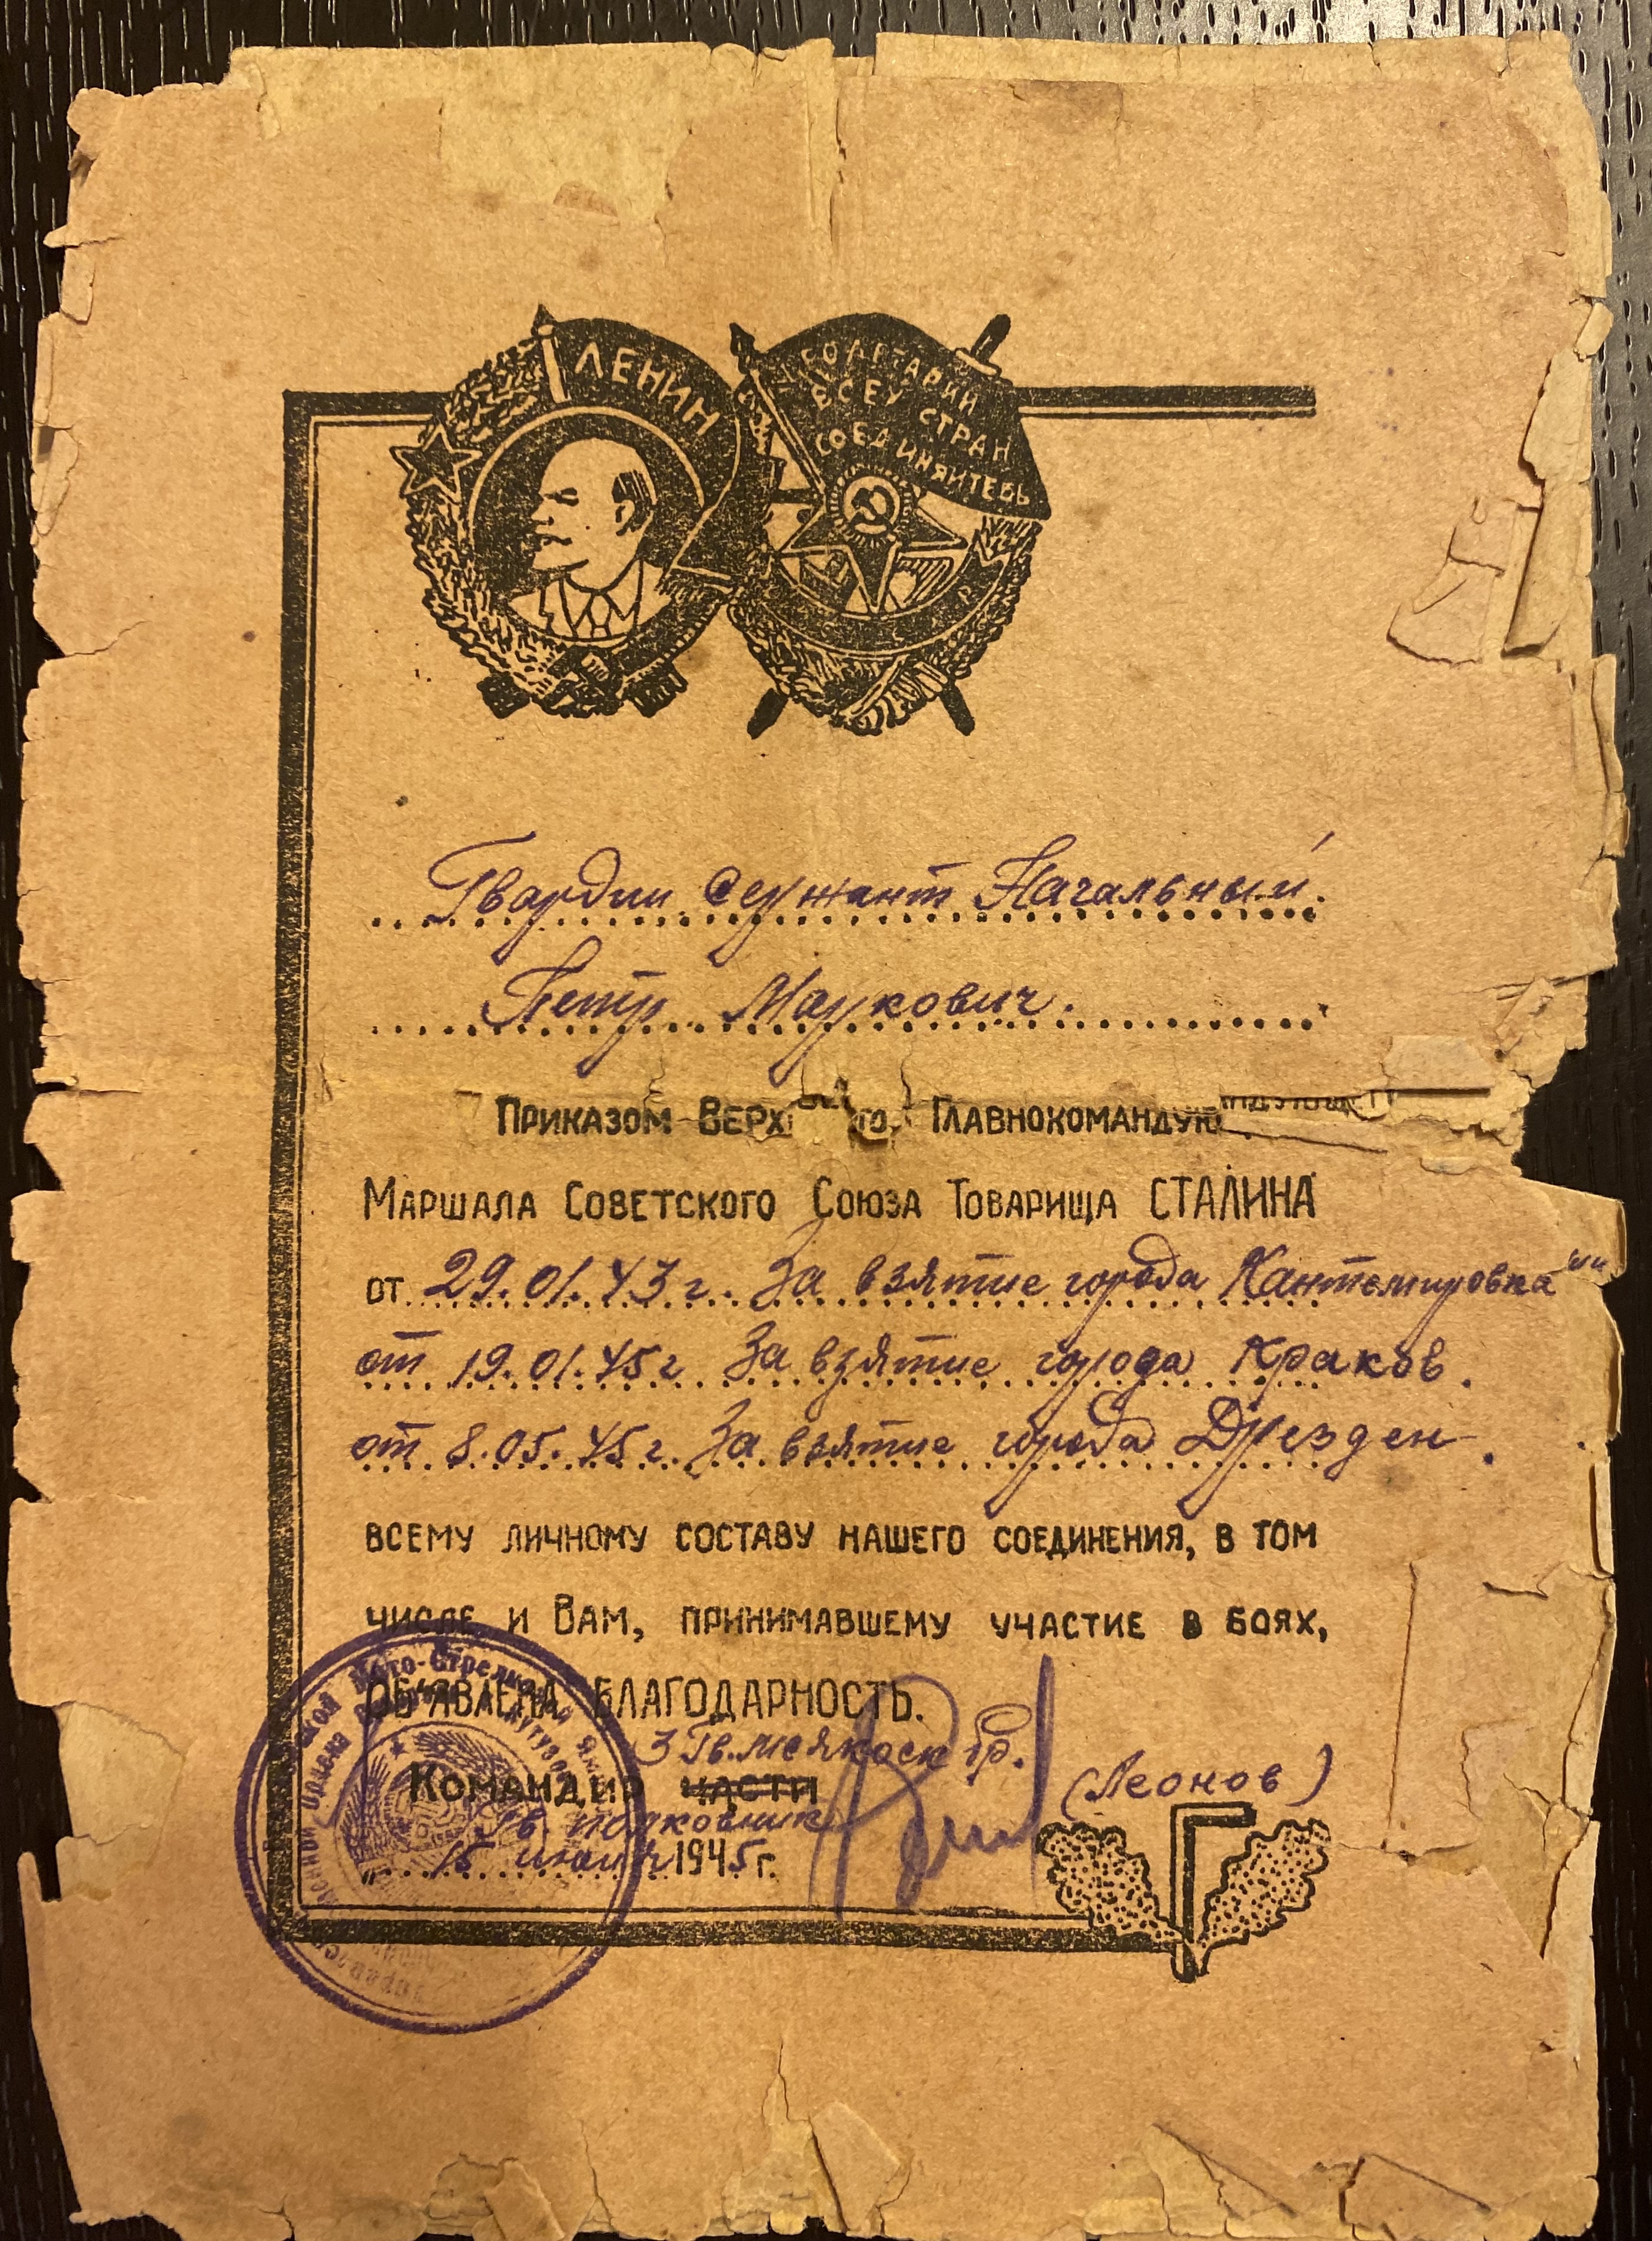 ЛЕНИН
ПРОЛЕТАРИИ
ВСЕХ СТРАН
СОЕДИНЯЙТЕСЬ
СССР
Гвардии Сержант Начальный
Петр Маркович.
Приказом Верх го, Главнокомандую
Маршала Советского Союза Товарища СТАЛИНА
от 29.01.43 г. За взятие города Кантемировка"
от 19.01.45 г За взятие города Краков.
от 8.05.45 г. За взятие города Дрезден.
всему личному составу нашего соединения, в том
числе и Вам, принимавшему участие в боях,
об'явлена благодарность.
3 Гв.
Командир части
(Леонов)
Гв. полковник
15 1945 г.
Мото-Стрелк
ордена Кутузов